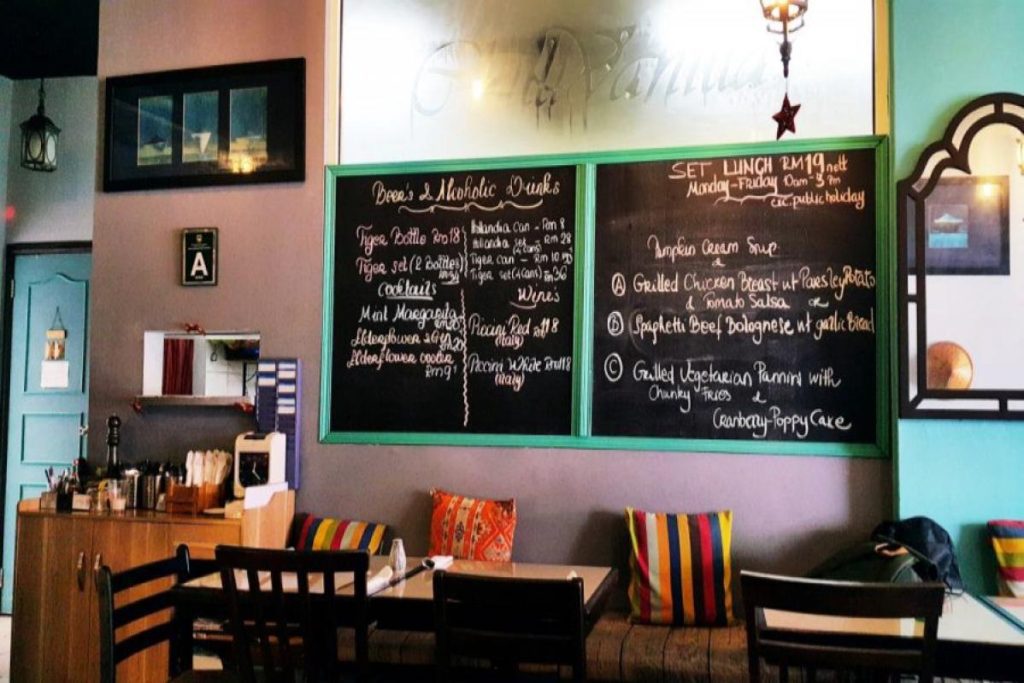 Vanilla
A
Beer's & Alcoholic Drinks
Tiger Bottle Rm18
Tiger set (2 Bottles)
Rm 36
Cocktails
Mint Margarita
Elderflower & Gin
Rm20
Elderflower cooler
Rm9
Hollandia can - Rm 8
Hollandia set
(4 cans) Rm 28
Tiger can - Rm 10.50
Tiger set (4 Cans) Rm 36
Wine's
Piccini Red Rm118
(Italy)
Piccini White Rm118
(Italy)
SET LUNCH RM19 nett
Monday-Friday
exc. public holiday
Pumpkin Cream Soup
&
A Grilled Chicken Breast wt Parsley Potatos
& Tomato Salsa or
B Spaghetti Beef Bolognese wt garlic Bread
C Grilled Vegetarian Pannini with
Chunky Fries &
Cranberry-Poppy Cake